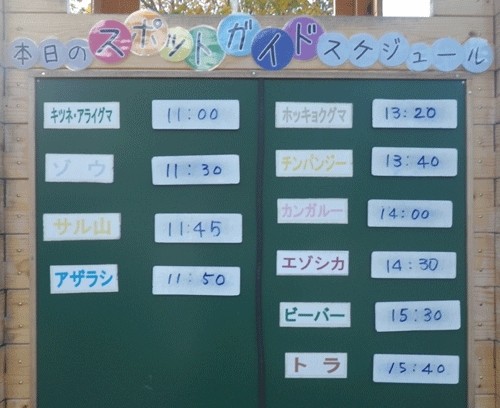 本日のスポットガイドスケジュール
キツネ・アライグマ 11:00
ゾウ 11:30
サル山 11:45
アザラシ 11:50
ホッキョクグマ 13:20
チンパンジー 13:40
カンガルー 14:00
エゾシカ 14:30
ビーバー 15:30
トラ 15:40